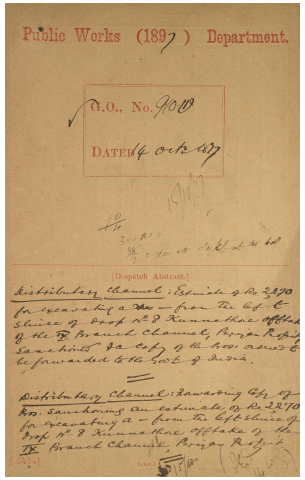 Public Works (1897) Department.
G.O., No. 910W
DATED 14 Oct 1897
[Despatch Abstract.]
Distributary Channel: Estimate of Rs 2270
for excavating a — from the left
sluice of Drop No 8 Kunnathore offtake
of the IX Branch Channel, Periyar Project
Sanctions a copy of the Pros: ordered to
be forwarded to the Govt of India.
Distributary Channel: Forwarding copy of
Pros. Sanctioning an estimate of Rs 2270
for excavating a — from the left sluice of
Drop No 8 Kunnathore offtake of the
IX Branch Channel Periyar Project